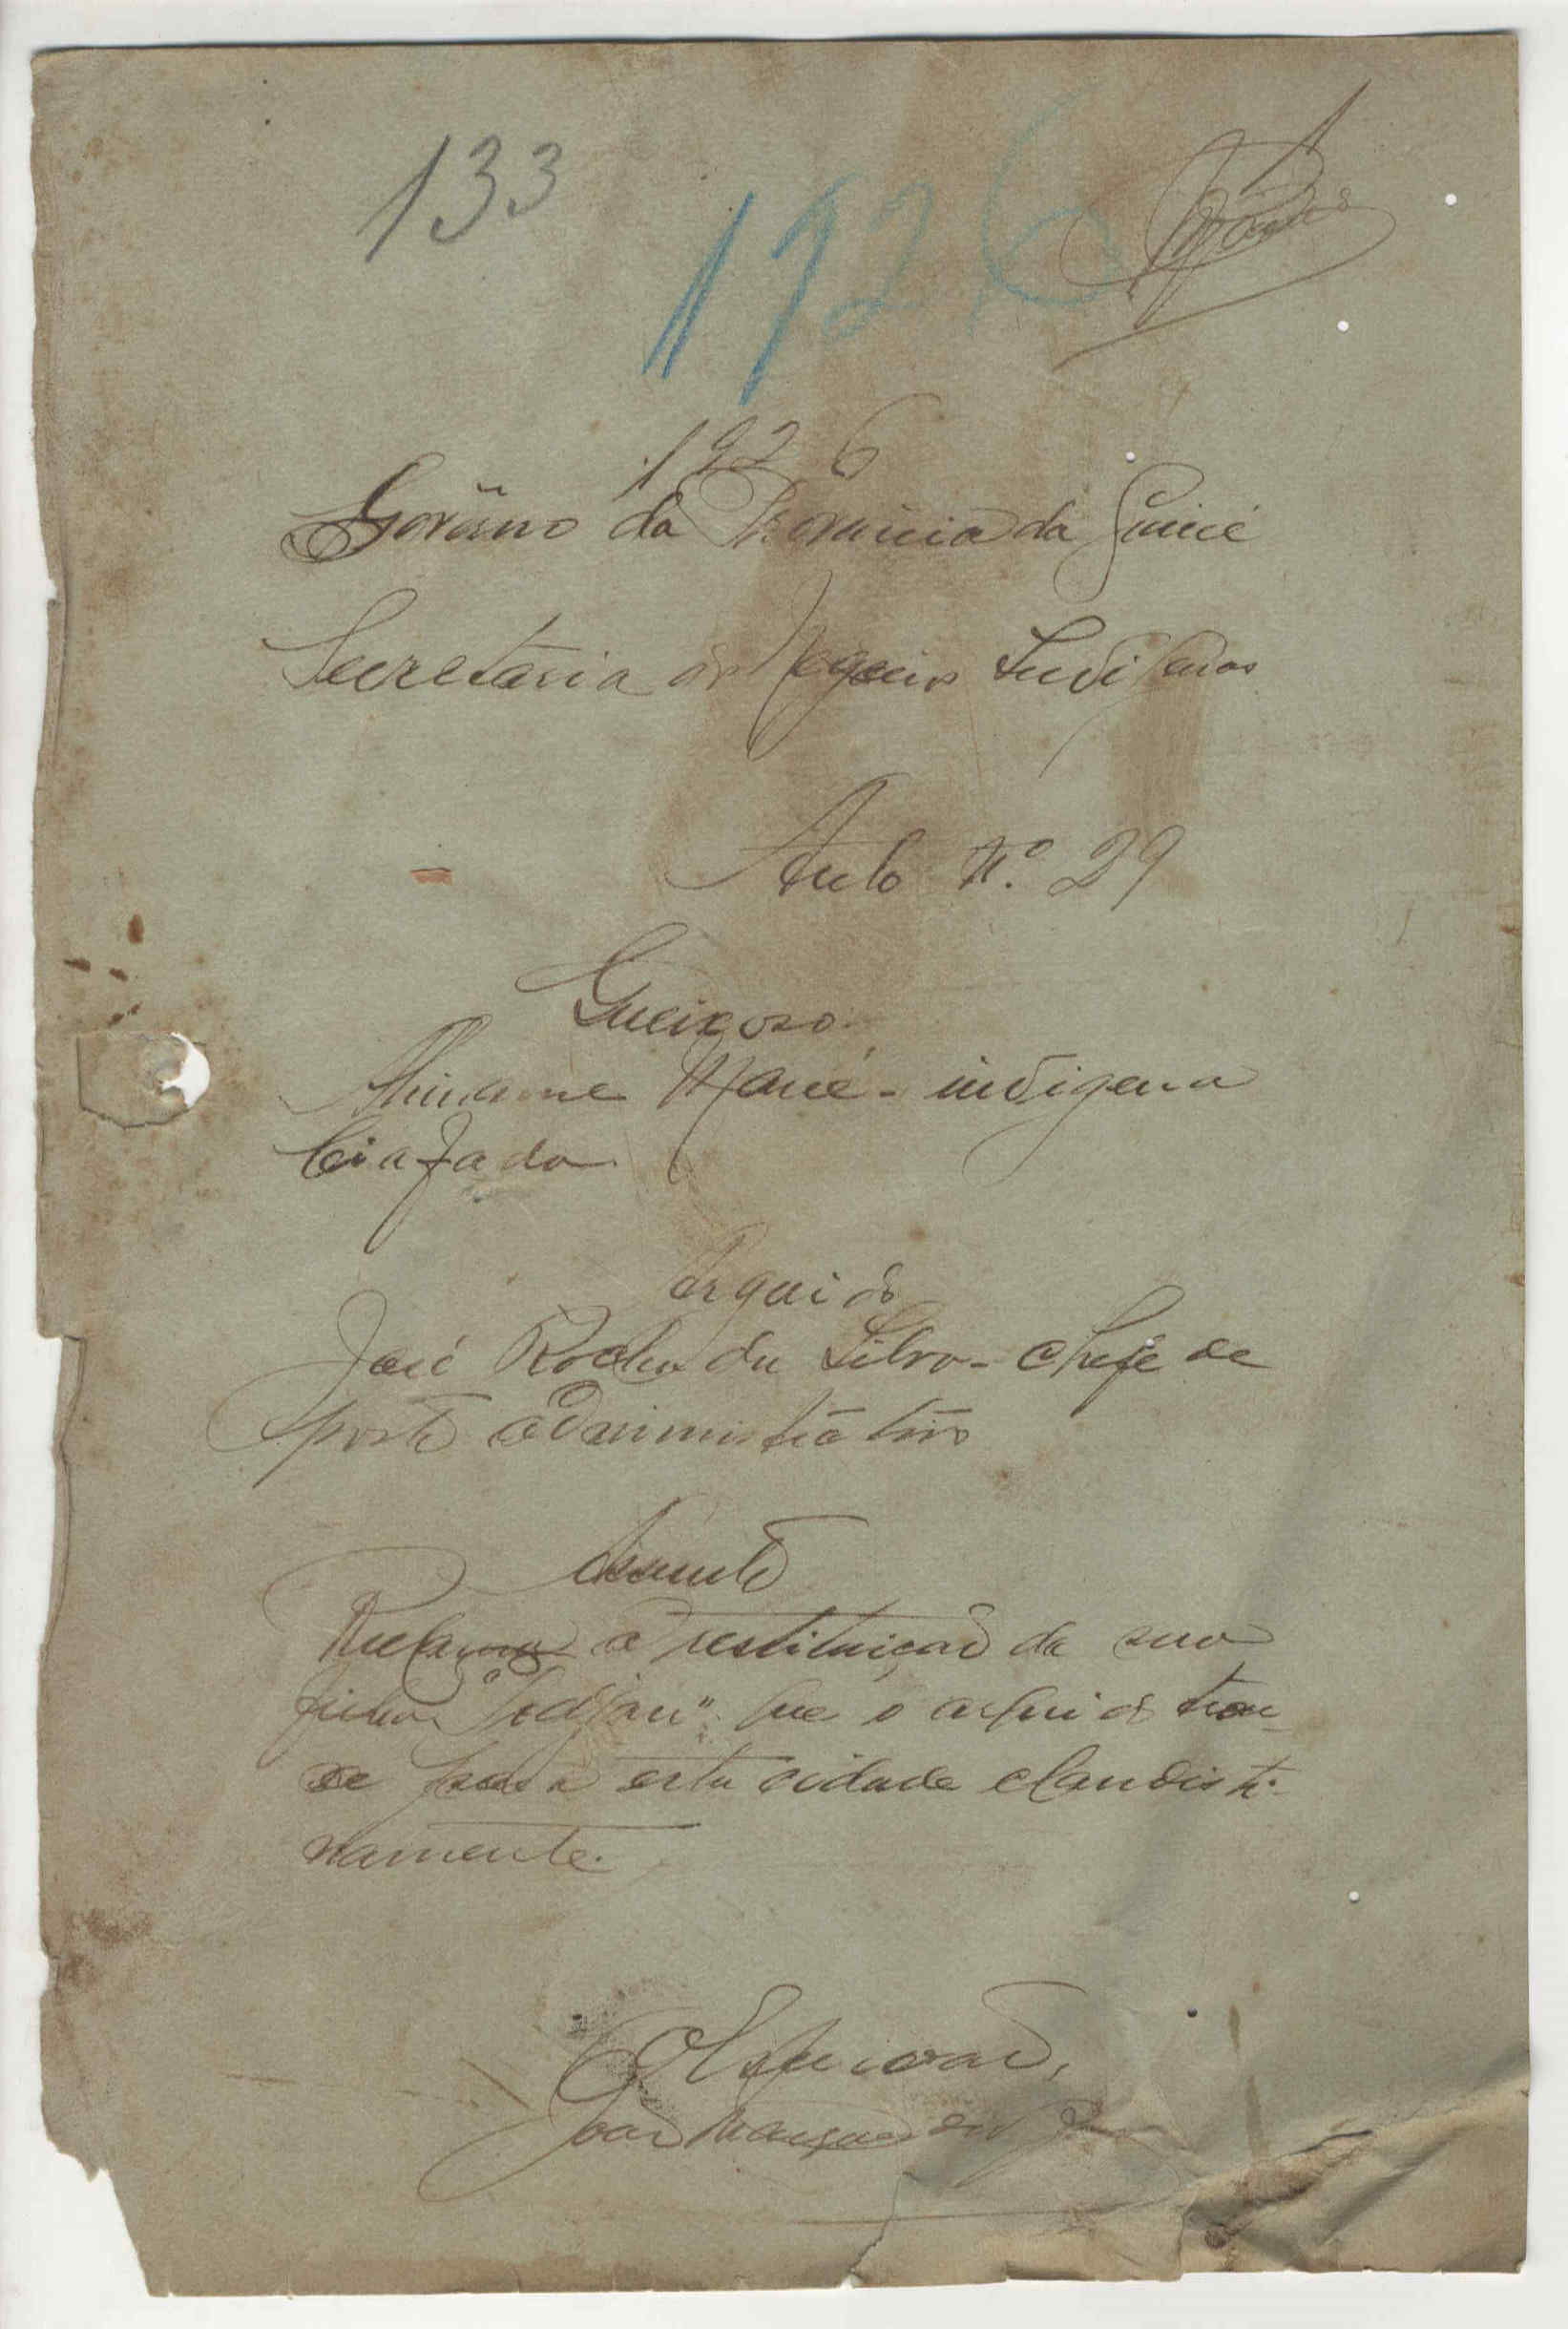 133
1926
1926
Govêrno da Provincia da Guiné
Secretaria dos Negocios Indigenas
Auto Nº. 29
Queixoso
Mané - indigena
biafada
Arguido
José Rocha da Silva - chefe de
posto administrativo
Assunto
Reclama a restituição da sua
filha "" que o arguido trou-
xe para esta cidade clandesti-
namente.
O Escrivão,
João